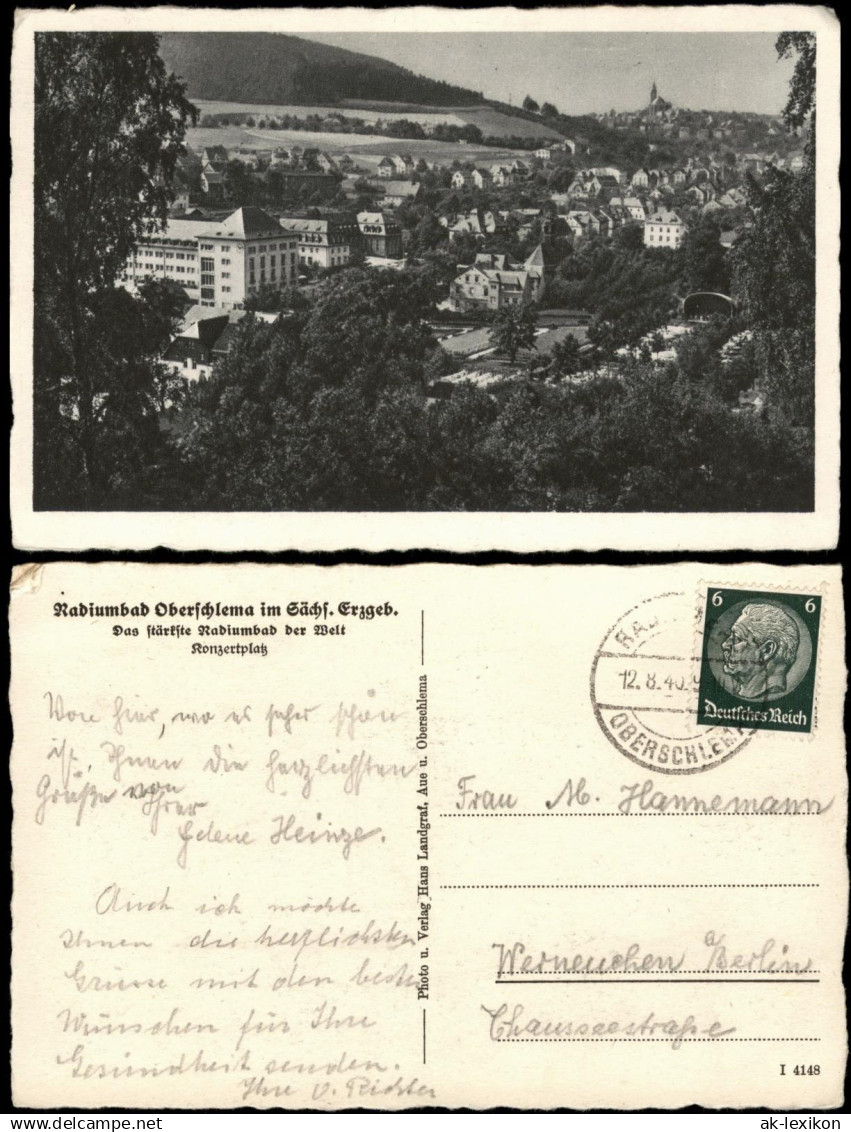 Radiumbad Oberschlema im Sächs. Erzgeb.
Das stärkste Radiumbad der Welt
Konzertplatz
Von hier, wo es sehr schön
ist, Ihnen die herzlichsten
Grüße von
Ihrer
Helene Heinze.
Auch ich möchte
Ihnen die herzlichsten
Grüsse mit den besten
Wünschen für Ihre
Gesundheit senden.
Ihre v. Richter
Photo u. Verlag Hans Landgraf, Aue u. Oberschlema
12.8.40
OBERSCHLEMA
6 6
Deutsches Reich
Frau M. Hannemann
Werneuchen a/Berlin
Chausseestraße
I 4148
ak-lexikon